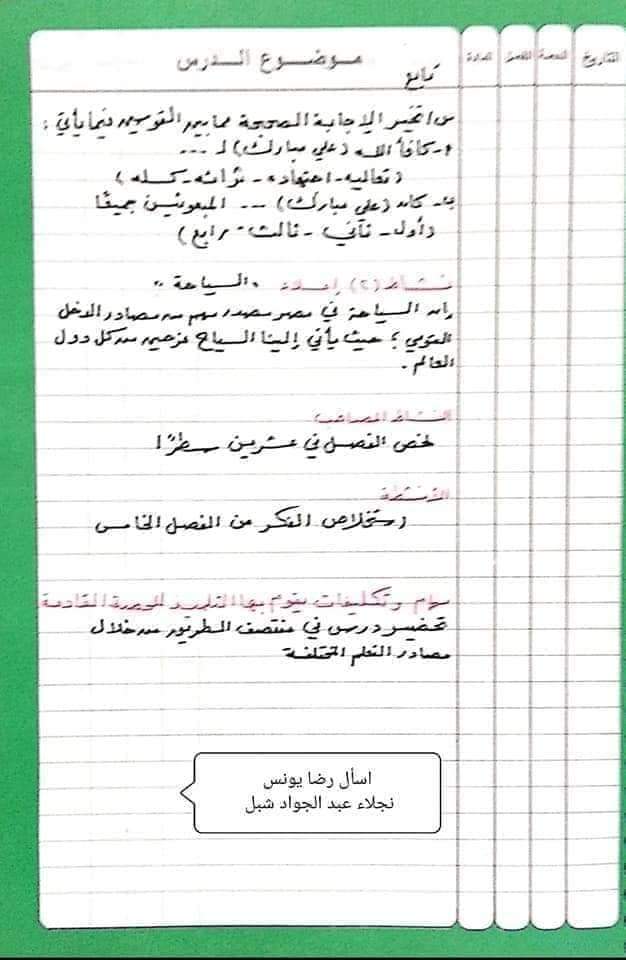 التاريخ
الحصة
الفصل
المادة
موضوع الدرس
تابع
س١ تخير الإجابة الصحيحة مما بين القوسين فيما يأتي :
أ- كافأ الله (علي مبارك) لـ ...
(تعاليه - اجتهاده - ثرائه - كسله)
ب- كان (علي مبارك) ... المبعوثين جميعًا
(أول - ثاني - ثالث - رابع)
نشاط (٢) إملاء " السياحة "
إن السياحة في مصر مصدر مهم من مصادر الدخل
القومي ؛ حيث يأتي إلينا السياح فرحين من كل دول
العالم .
النشاط المصاحب
لخص الفصل في عشرين سطرًا
الأنشطة
استخلاص الفكر من الفصل الخامس
مهام وتكليفات يقوم بها التلميذ للحصة القادمة
تحضير درس في منتصف الطريق من خلال
مصادر التعلم المختلفة
اسأل رضا يونس
نجلاء عبد الجواد شبل